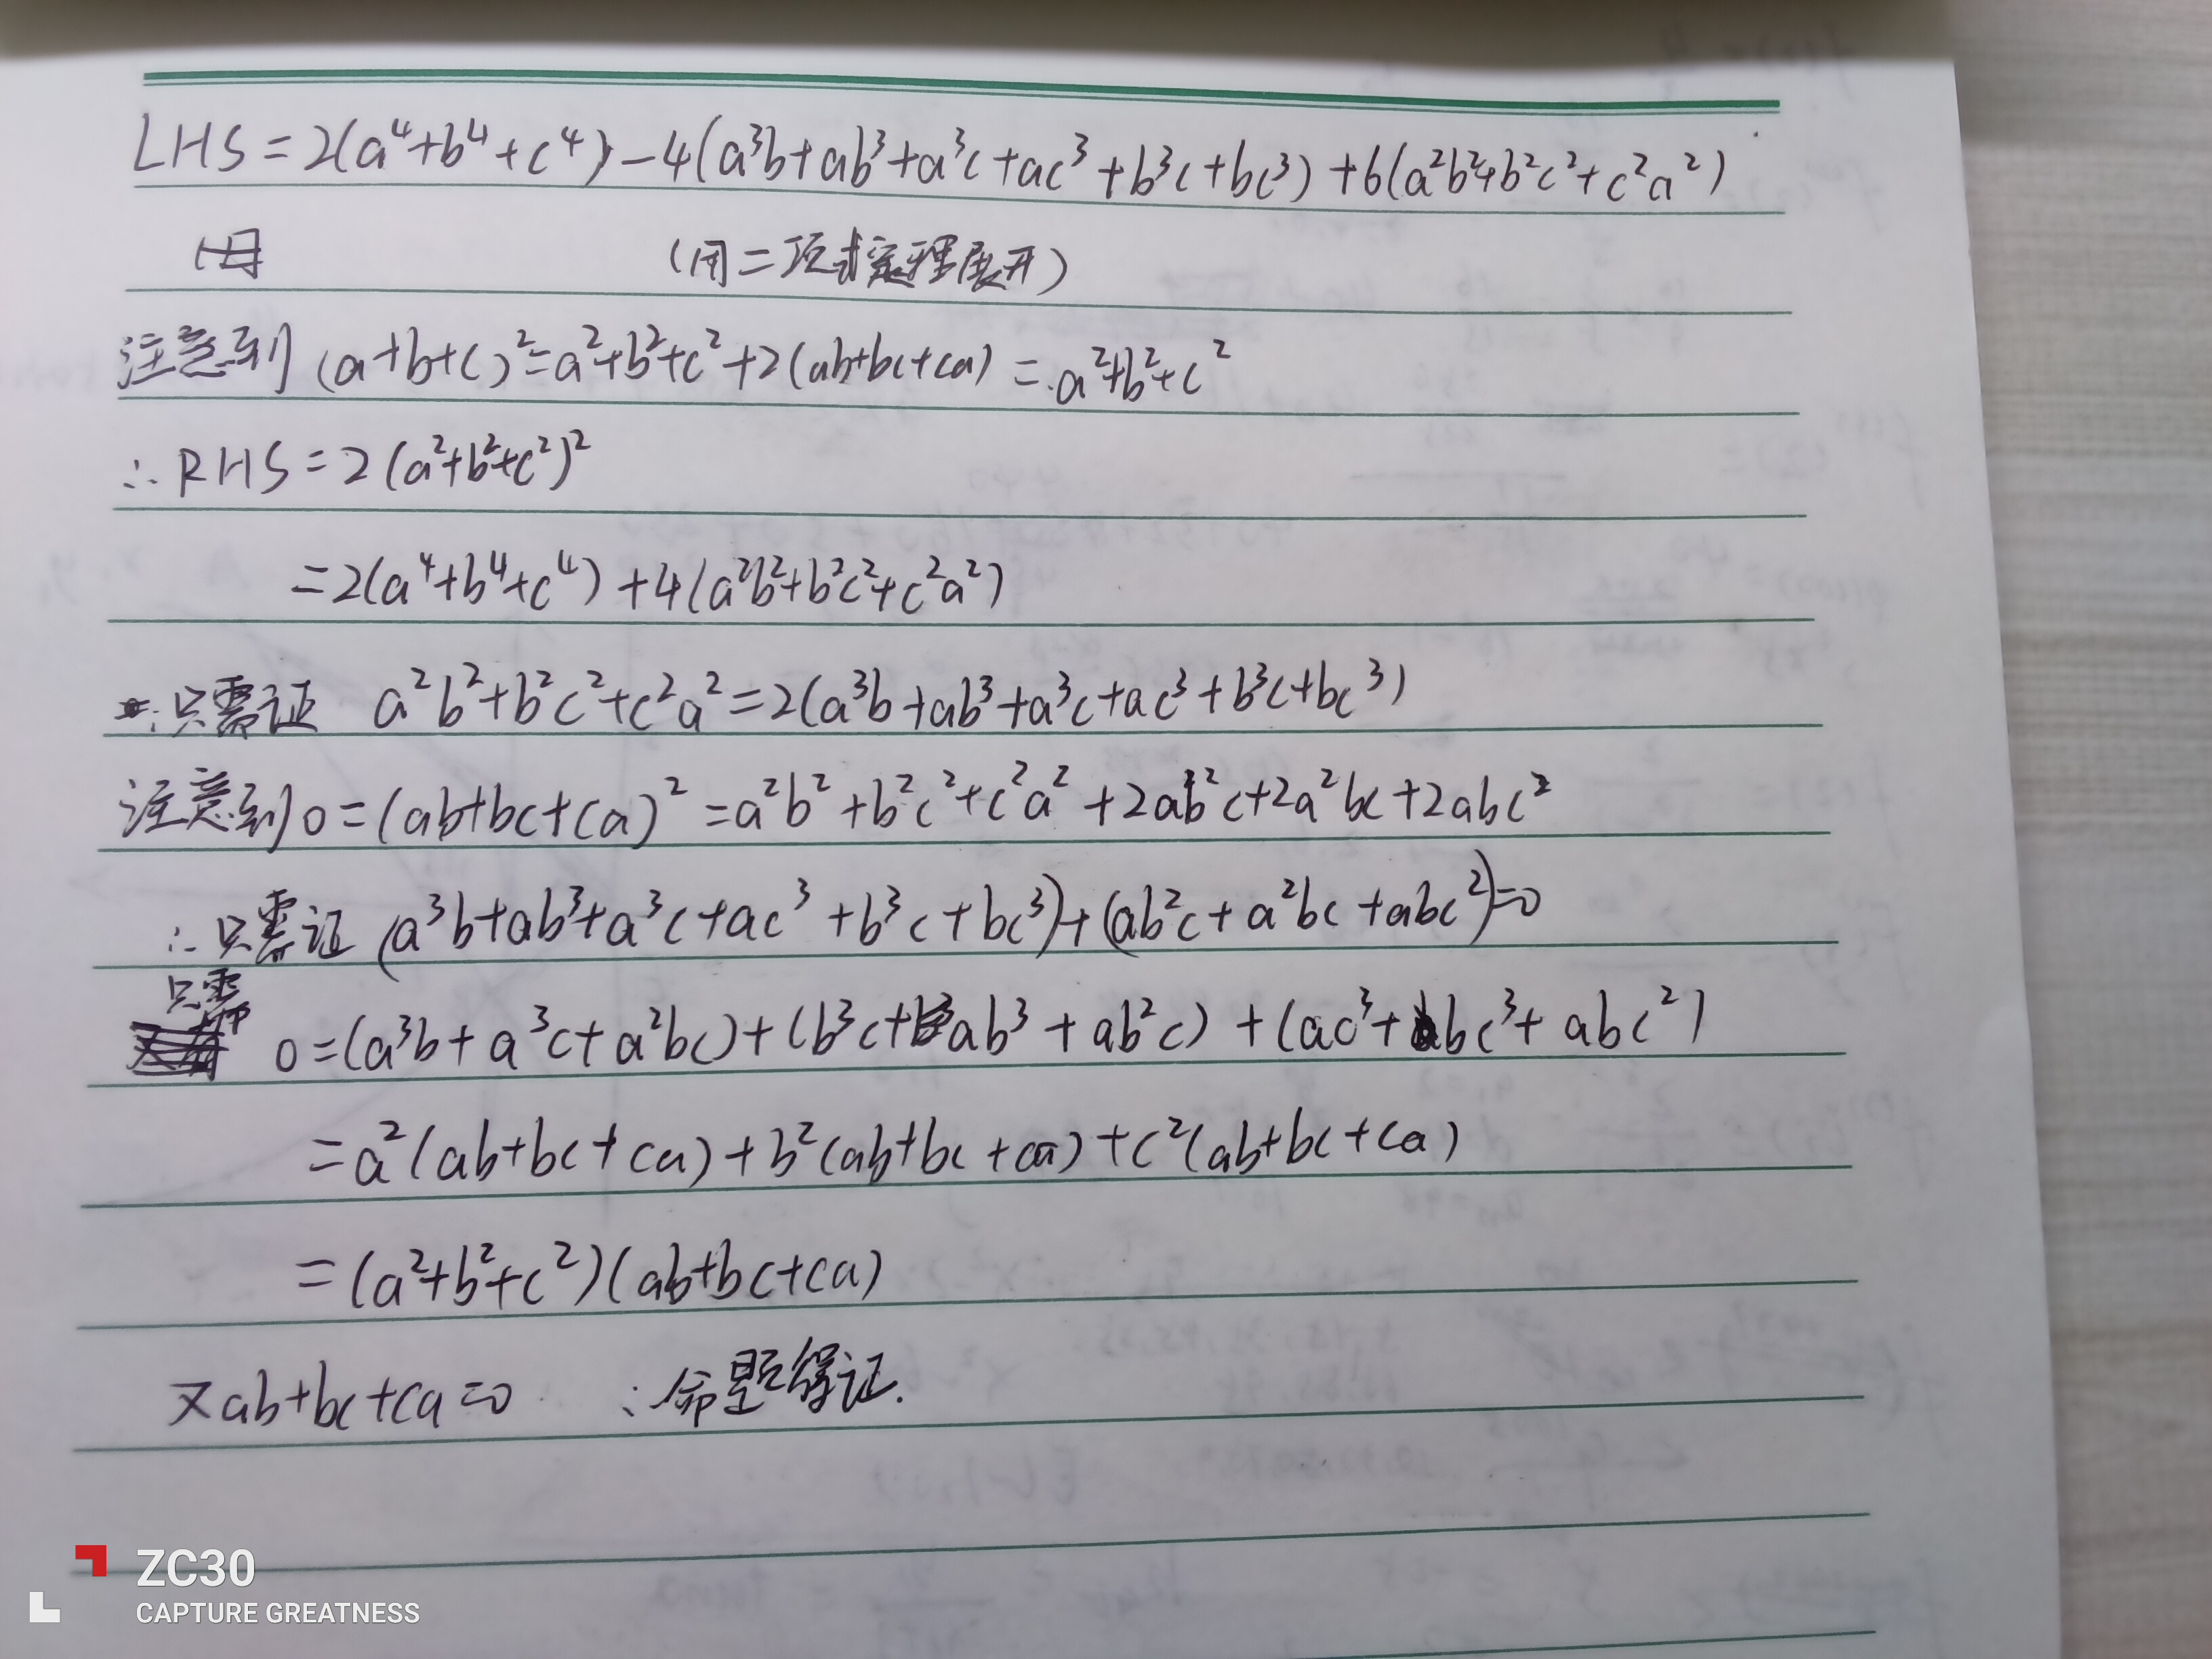 LHS = 2(a⁴+b⁴+c⁴) - 4(a³b+ab³+a³c+ac³+b³c+bc³) + 6(a²b²+b²c²+c²a²)
(用二项式定理展开)
注意到 (a+b+c)² = a²+b²+c²+2(ab+bc+ca) = a²+b²+c²
∴ RHS = 2(a²+b²+c²)²
= 2(a⁴+b⁴+c⁴) + 4(a²b²+b²c²+c²a²)
∴只需证 a²b²+b²c²+c²a² = 2(a³b+ab³+a³c+ac³+b³c+bc³)
注意到 0 = (ab+bc+ca)² = a²b²+b²c²+c²a²+2ab²c+2a²bc+2abc²
∴只需证 (a³b+ab³+a³c+ac³+b³c+bc³)+(ab²c+a²bc+abc²)=0
只需 0 = (a³b+a³c+a²bc)+(b³c+ab³+ab²c)+(ac³+bc³+abc²)
= a²(ab+bc+ca)+b²(ab+bc+ca)+c²(ab+bc+ca)
= (a²+b²+c²)(ab+bc+ca)
又ab+bc+ca=0 ∴命题得证.
ZC30
CAPTURE GREATNESS